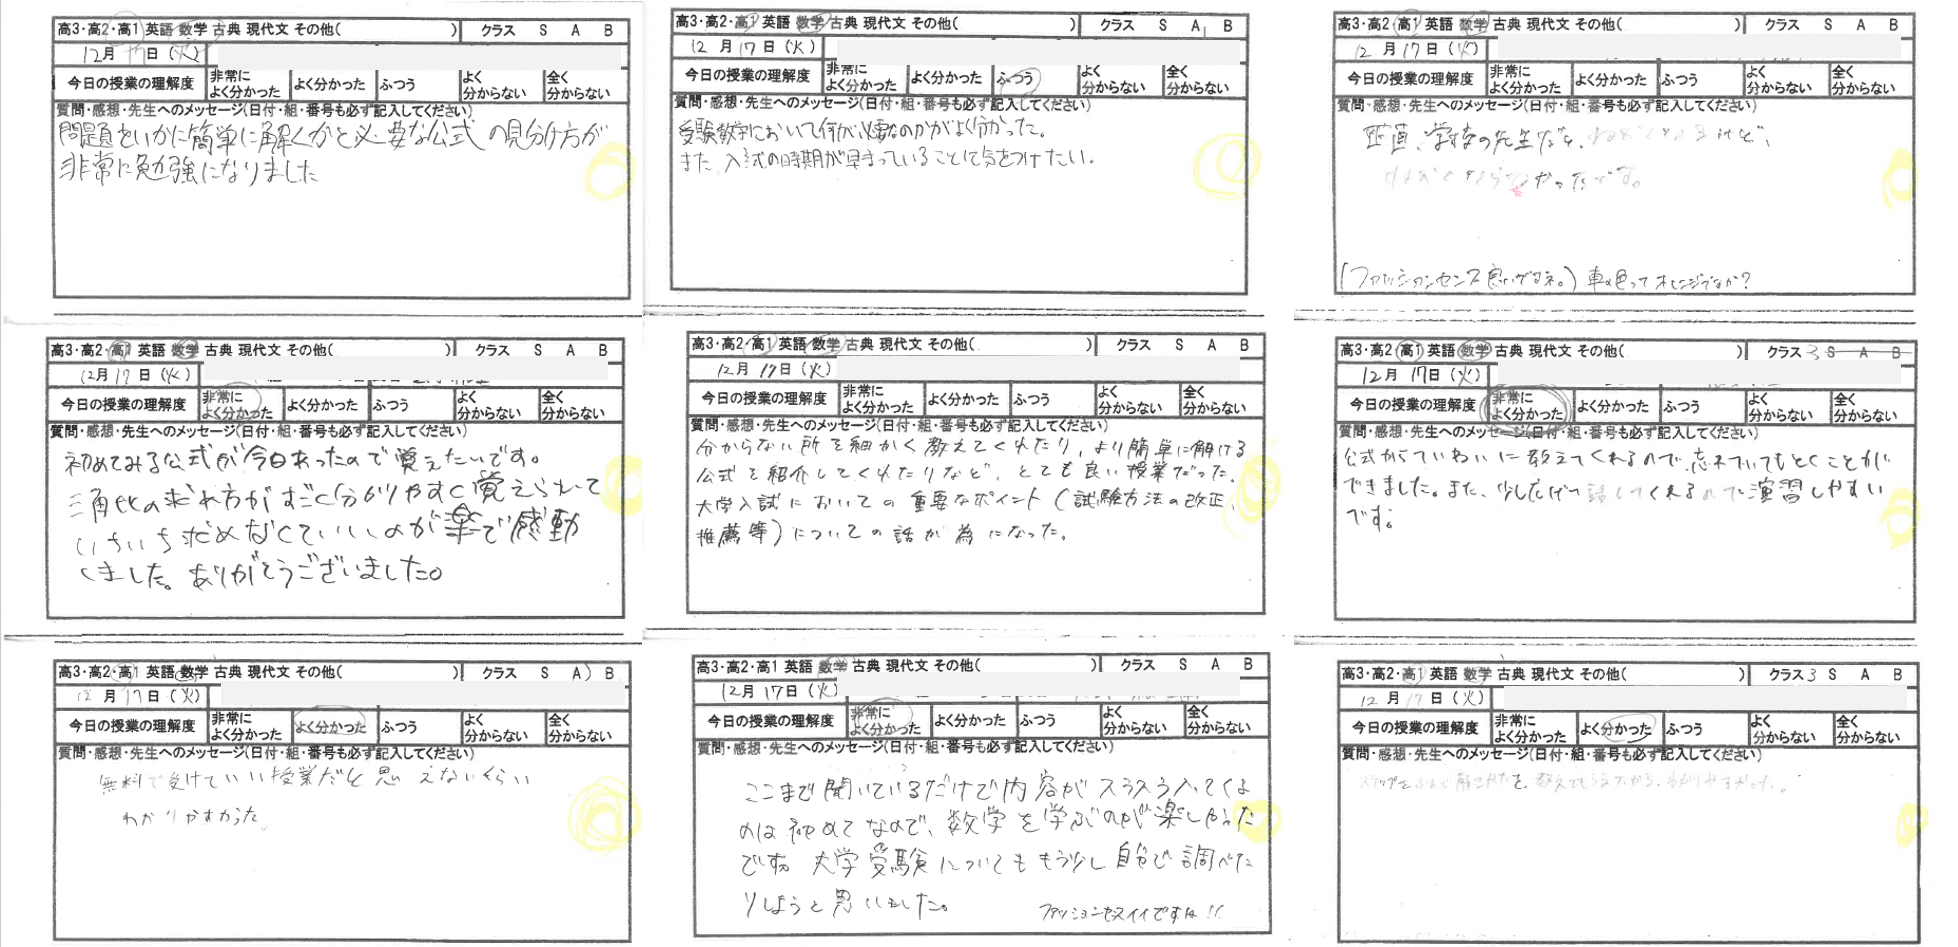 高3・高2・高1 英語 数学 古典 現代文 その他( ) クラス S A B
12月17日(火)
今日の授業の理解度 非常によく分かった よく分かった ふつう よく分からない 全く分からない
質問・感想・先生へのメッセージ(日付・組・番号も必ず記入してください)
問題をいかに簡単に解くかと必要な公式の見分け方が
非常に勉強になりました
高3・高2・高1 英語 数学 古典 現代文 その他( ) クラス S A B
12月17日(火)
今日の授業の理解度 非常によく分かった よく分かった ふつう よく分からない 全く分からない
質問・感想・先生へのメッセージ(日付・組・番号も必ず記入してください)
受験数学において何が必要なのかがよく分かった。
また、入試の時期が早まっていることに気をつけたい。
高3・高2・高1 英語 数学 古典 現代文 その他( ) クラス S A B
12月17日(火)
今日の授業の理解度 非常によく分かった よく分かった ふつう よく分からない 全く分からない
質問・感想・先生へのメッセージ(日付・組・番号も必ず記入してください)
正直、学校の先生だと、ねむくなるけど、
ねむくならなかったです。
(ファッションセンス良いですね。) 車の色ってオレンジですか?
高3・高2・高1 英語 数学 古典 現代文 その他( ) クラス S A B
12月17日(火)
今日の授業の理解度 非常によく分かった よく分かった ふつう よく分からない 全く分からない
質問・感想・先生へのメッセージ(日付・組・番号も必ず記入してください)
初めてみる公式が今日あったので覚えたいです。
三角比の求め方がすごく分かりやすく覚えられて
いちいち求めなくていいのが楽で感動
しました。ありがとうございました。
高3・高2・高1 英語 数学 古典 現代文 その他( ) クラス S A B
12月17日(火)
今日の授業の理解度 非常によく分かった よく分かった ふつう よく分からない 全く分からない
質問・感想・先生へのメッセージ(日付・組・番号も必ず記入してください)
分からない所を細かく教えてくれたり、より簡単に解ける
公式を紹介してくれたりなど、とても良い授業だった。
大学入試においての重要なポイント(試験方法の改正、
推薦等)についての話が為になった。
高3・高2・高1 英語 数学 古典 現代文 その他( ) クラス3 S A B
12月17日(火)
今日の授業の理解度 非常によく分かった よく分かった ふつう よく分からない 全く分からない
質問・感想・先生へのメッセージ(日付・組・番号も必ず記入してください)
公式からていねいに教えてくれるので、忘れていてもとくことが
できました。また、少しだけ話してくれるので演習しやすい
です。
高3・高2・高1 英語 数学 古典 現代文 その他( ) クラス S A B
12月17日(火)
今日の授業の理解度 非常によく分かった よく分かった ふつう よく分からない 全く分からない
質問・感想・先生へのメッセージ(日付・組・番号も必ず記入してください)
無料で受けていい授業だと思えないくらい
わかりやすかった。
高3・高2・高1 英語 数学 古典 現代文 その他( ) クラス S A B
12月17日(火)
今日の授業の理解度 非常によく分かった よく分かった ふつう よく分からない 全く分からない
質問・感想・先生へのメッセージ(日付・組・番号も必ず記入してください)
ここまで聞いているだけで内容がスラスラ入ってくる
のは初めてなので、数学を学ぶのが楽しかった
です。大学受験についてももう少し自分で調べた
りしようと思いました。
ファッションセンスイイですね!!
高3・高2・高1 英語 数学 古典 現代文 その他( ) クラス3 S A B
12月17日(火)
今日の授業の理解度 非常によく分かった よく分かった ふつう よく分からない 全く分からない
質問・感想・先生へのメッセージ(日付・組・番号も必ず記入してください)
ステップをふんで解きかたを、教えてもらえたから、わかりやすかった。